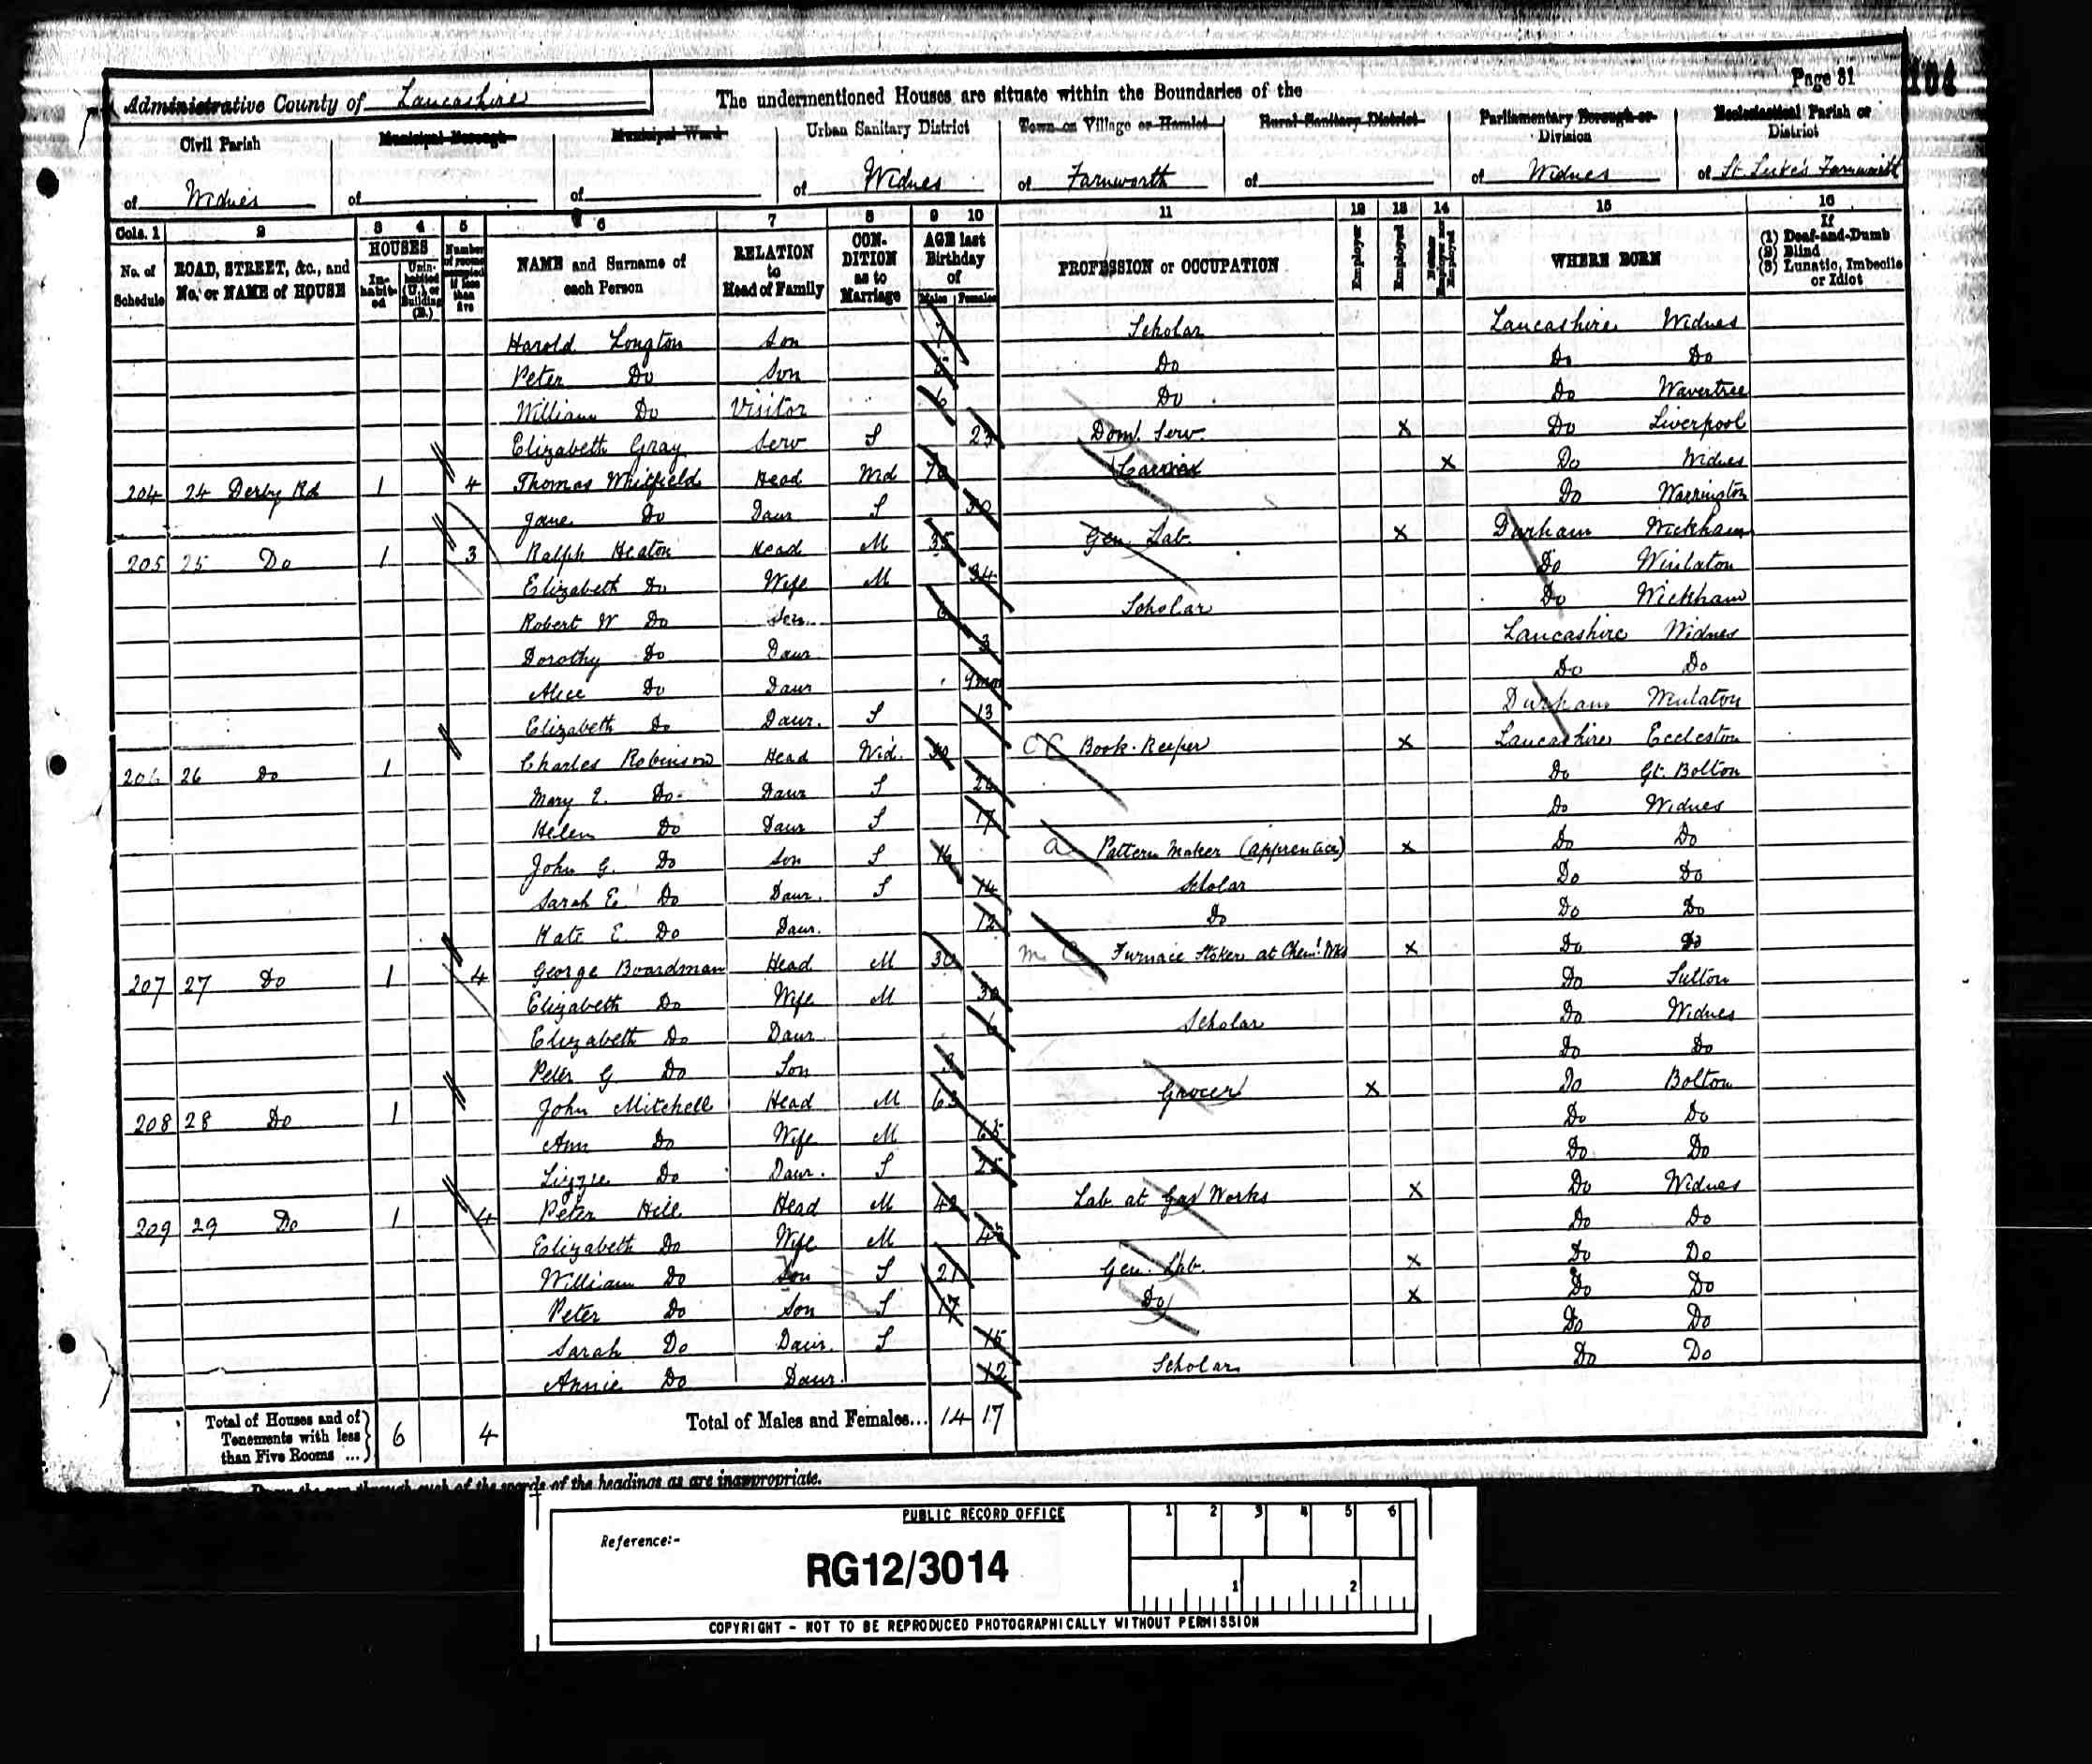 Page 31
104
Administrative County of Lancashire
The undermentioned Houses are situate within the Boundaries of the
Civil Parish
Municipal Borough
Municipal Ward
Urban Sanitary District
Town or Village or Hamlet
Rural Sanitary District
Parliamentary Borough or Division
Ecclesiastical Parish or District
of Widnes
of
of
of Widnes
of Farnworth
of
of Widnes
of St Luke's Farnworth
Cols. 1 2 3 4 5 6 7 8 9 10 11 12 13 14 15 16
No. of Schedule
ROAD, STREET, &c., and No. or NAME of HOUSE
HOUSES
Inhabited
Uninhabited (U.), or Building (B.)
Number of rooms occupied if less than five
NAME and Surname of each Person
RELATION to Head of Family
CONDITION as to Marriage
AGE last Birthday of
Males Females
PROFESSION or OCCUPATION
Employer
Employed
Neither Employer nor Employed
WHERE BORN
If
(1) Deaf-and-Dumb
(2) Blind
(3) Lunatic, Imbecile or Idiot
Harold Longton Son 7 Scholar Lancashire Widnes
Peter Do Son 5 Do Do Do
William Do Visitor 6 Do Do Wavertree
Elizabeth Gray Serv S 23 Doml. Serv. x Do Liverpool
204 24 Derby Rd 1 4 Thomas Whitfield Head Wid x Do Widnes
Jane Do Daur S 30 Do Warrington
205 25 Do 1 3 Ralph Heaton Head M 35 Gen. Lab. x Durham Wickham
Elizabeth Do Wife M 34 Do Winlaton
Robert W Do Son 6 Scholar Do Wickham
Dorothy Do Daur 3 Lancashire Widnes
Alice Do Daur Do Do
Elizabeth Do Daur. S 13 Durham Winlaton
206 26 Do 1 Charles Robinson Head Wid. Book-Keeper x Lancashire Eccleston
Mary E. Do Daur S 26 Do Gt. Bolton
Helen Do Daur S 17 Do Widnes
John G. Do Son S 16 Pattern Maker (apprentice) x Do Do
Sarah E. Do Daur. S 14 Scholar Do Do
Kate E Do Daur. 12 Do Do Do
207 27 Do 1 4 George Boardman Head M 30 Furnace Stoker at Cheml. Wks x Do Do
Elizabeth Do Wife M 30 Do Sutton
Elizabeth Do Daur. 6 Scholar Do Widnes
Peter G Do Son 3 Do Do
208 28 Do 1 John Mitchell Head M 63 Grocer x Do Bolton
Ann Do Wife M 65 Do Do
Lizzie Do Daur. S 25 Do Do
209 29 Do 1 4 Peter Hill Head M 42 Lab. at Gas Works x Do Widnes
Elizabeth Do Wife M 45 Do Do
William Do Son S 21 Gen. Lab. x Do Do
Peter Do Son S 17 Do x Do Do
Sarah Do Daur. S 15 Do Do
Annie Do Daur. 12 Scholar Do Do
Total of Houses and of Tenements with less than Five Rooms ... 6 4
Total of Males and Females... 14 17
of the words of the headings as are inappropriate.
PUBLIC RECORD OFFICE
1 2 3 4 5 6
Reference:-
RG12/3014
1 2
COPYRIGHT - NOT TO BE REPRODUCED PHOTOGRAPHICALLY WITHOUT PERMISSION